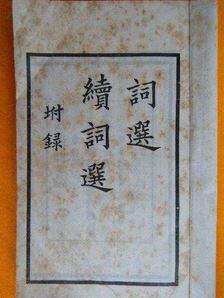 詞選
續詞選
坿録